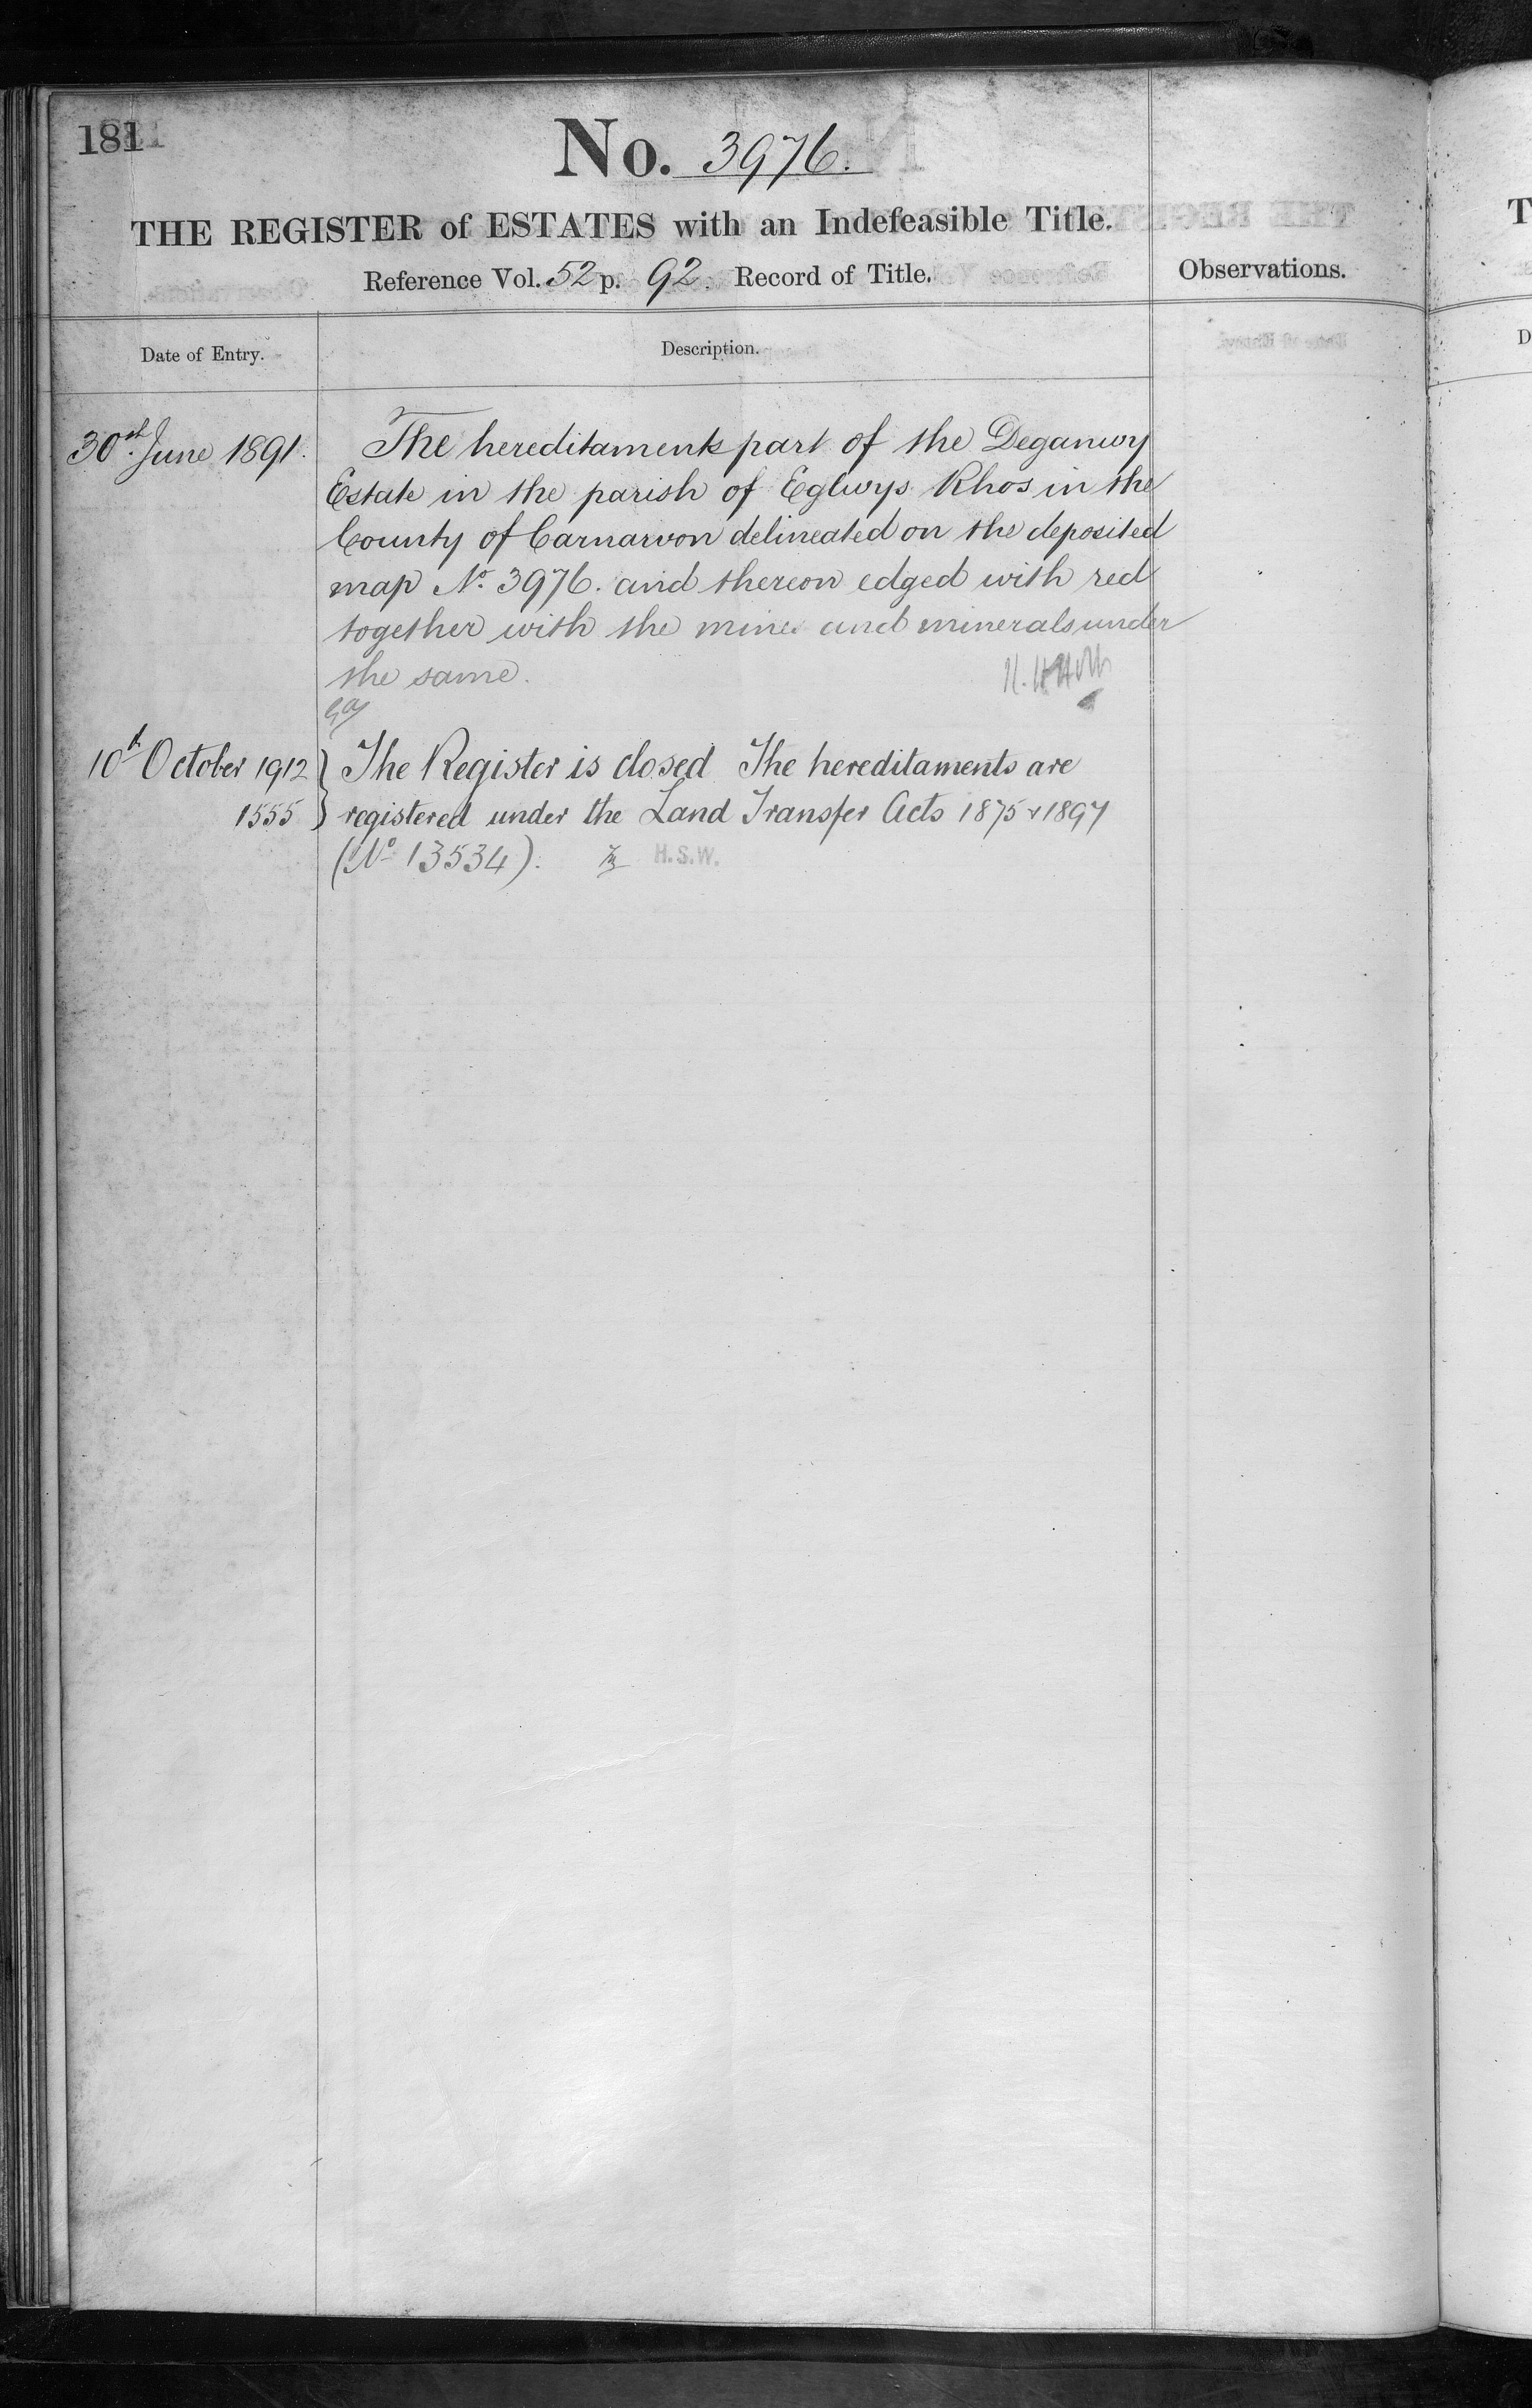 181
No. 3976.
THE REGISTER of ESTATES with an Indefeasible Title.
Reference Vol. 52 p. 92. Record of Title.
Observations.
Date of Entry.
Description.
30st. June 1891.
The hereditaments part of the Deganwy
Estate in the parish of Eglwys Rhos in the
County of Carnarvon delineated on the deposited
map No. 3976. and thereon edged with red
together with the mines and minerals under
the same.
10th October 1912
1555
The Register is closed The hereditaments are
registered under the Land Transfer Acts 1875 & 1897
(No 13534). H.S.W.